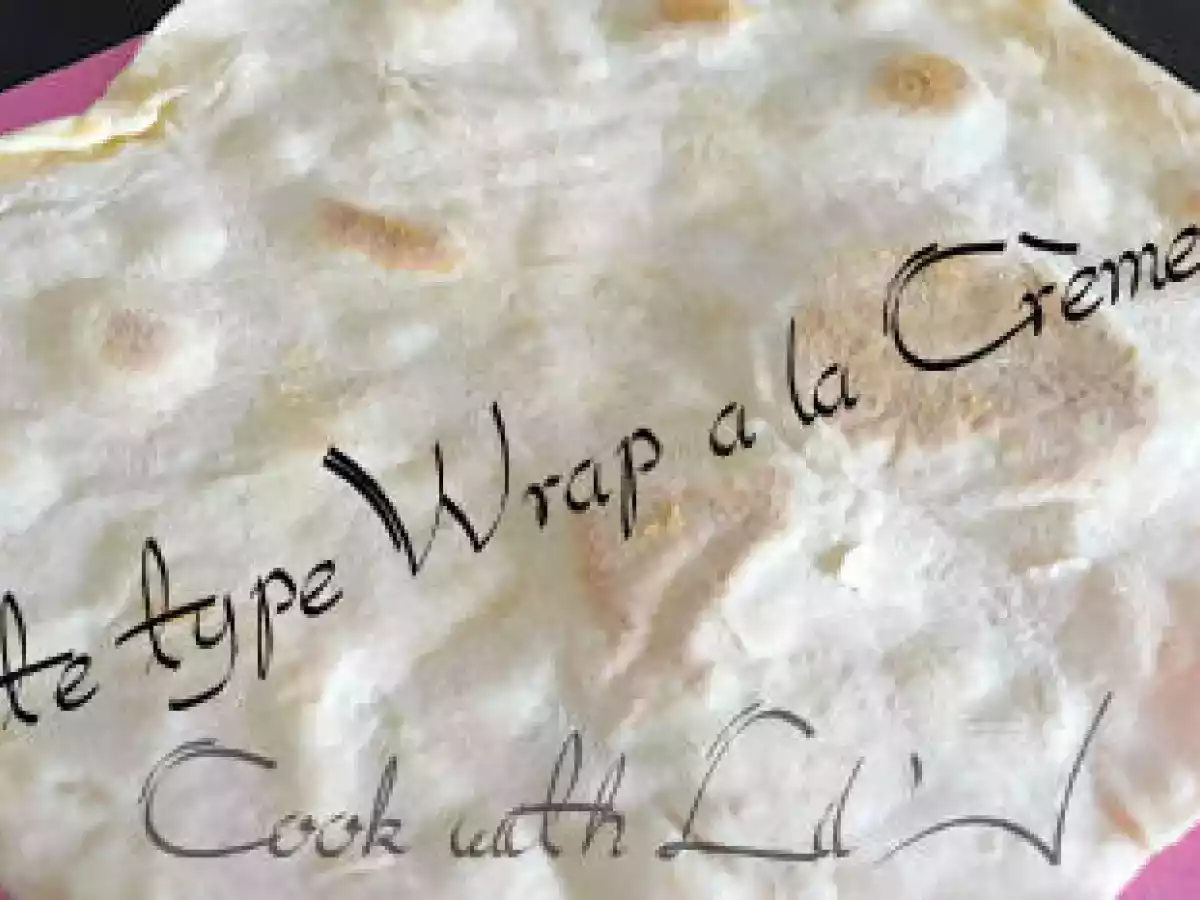 te type Wrap a la Crème
Cook with